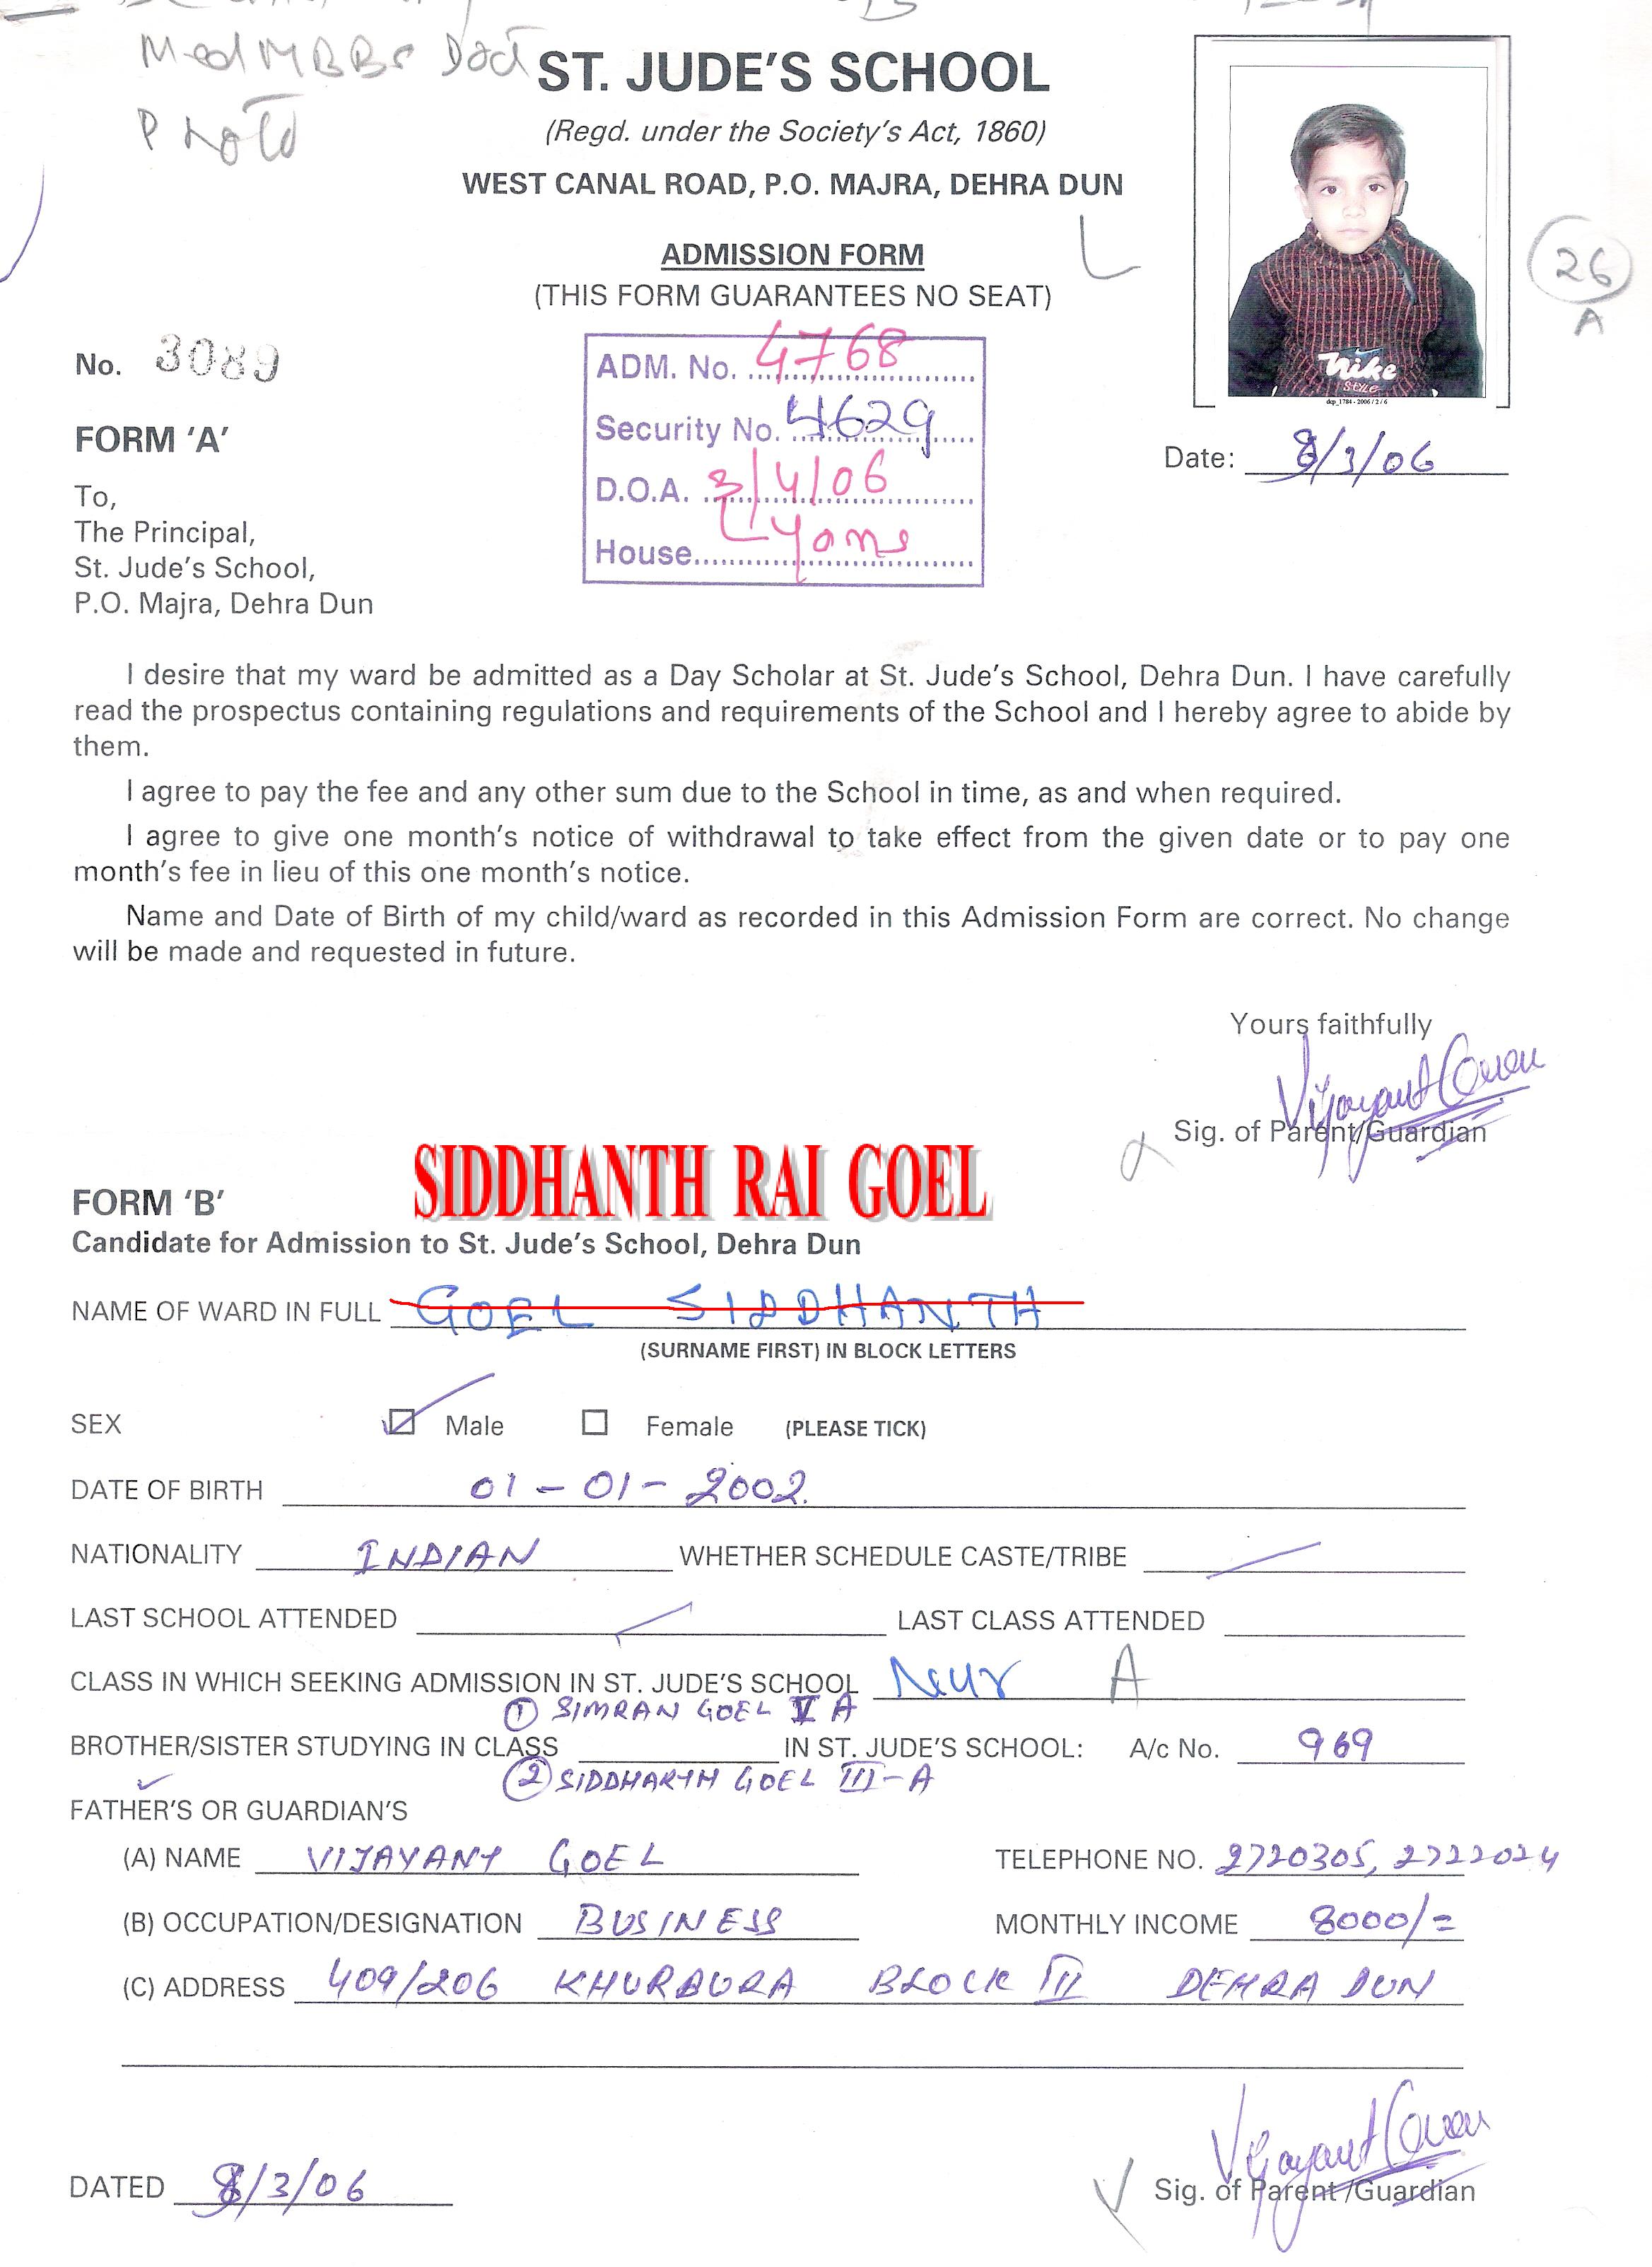 Med MBBS Doct
Photo
ST. JUDE'S SCHOOL
(Regd. under the Society's Act, 1860)
WEST CANAL ROAD, P.O. MAJRA, DEHRA DUN
ADMISSION FORM
(THIS FORM GUARANTEES NO SEAT)
Nike
STYLE
dcp_1784 - 2006 / 2 / 6
26
A
No. 3089
ADM. No. 4768
Security No. 4629
D.O.A. 3/4/06
House Lyons
Date: 8/3/06
FORM 'A'
To,
The Principal,
St. Jude's School,
P.O. Majra, Dehra Dun
I desire that my ward be admitted as a Day Scholar at St. Jude's School, Dehra Dun. I have carefully
read the prospectus containing regulations and requirements of the School and I hereby agree to abide by
them.
I agree to pay the fee and any other sum due to the School in time, as and when required.
I agree to give one month's notice of withdrawal to take effect from the given date or to pay one
month's fee in lieu of this one month's notice.
Name and Date of Birth of my child/ward as recorded in this Admission Form are correct. No change
will be made and requested in future.
Yours faithfully
Vijayant Goel
Sig. of Parent/Guardian
SIDDHANTH RAI GOEL
FORM 'B'
Candidate for Admission to St. Jude's School, Dehra Dun
NAME OF WARD IN FULL GOEL SIDDHANTH
(SURNAME FIRST) IN BLOCK LETTERS
SEX Male Female (PLEASE TICK)
DATE OF BIRTH 01-01-2002.
NATIONALITY INDIAN WHETHER SCHEDULE CASTE/TRIBE
LAST SCHOOL ATTENDED LAST CLASS ATTENDED
CLASS IN WHICH SEEKING ADMISSION IN ST. JUDE'S SCHOOL Nur A
① SIMRAN GOEL V A
BROTHER/SISTER STUDYING IN CLASS IN ST. JUDE'S SCHOOL: A/c No. 969
② SIDDHARTH GOEL III-A
FATHER'S OR GUARDIAN'S
(A) NAME VIJAYANT GOEL TELEPHONE NO. 2720305, 2722024
(B) OCCUPATION/DESIGNATION BUSINESS MONTHLY INCOME 8000/=
(C) ADDRESS 409/206 KHURBURA BLOCK III DEHRA DUN
Vijayant Goel
DATED 8/3/06 Sig. of Parent/Guardian